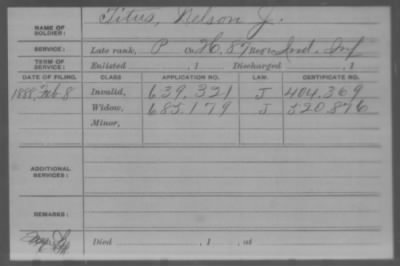 NAME OF SOLDIER: Titus, Nelson J.
SERVICE: Late rank, P Co. H, 87 Reg't Ind. Inf
TERM OF SERVICE: Enlisted , 1 Discharged , 1
DATE OF FILING. CLASS. APPLICATION NO. LAW. CERTIFICATE NO.
1888, Feb 8 Invalid, 639.321 J 404.369
Widow, 685.179 J 520.876
Minor,
ADDITIONAL SERVICES:
REMARKS:
Died , 1 , at